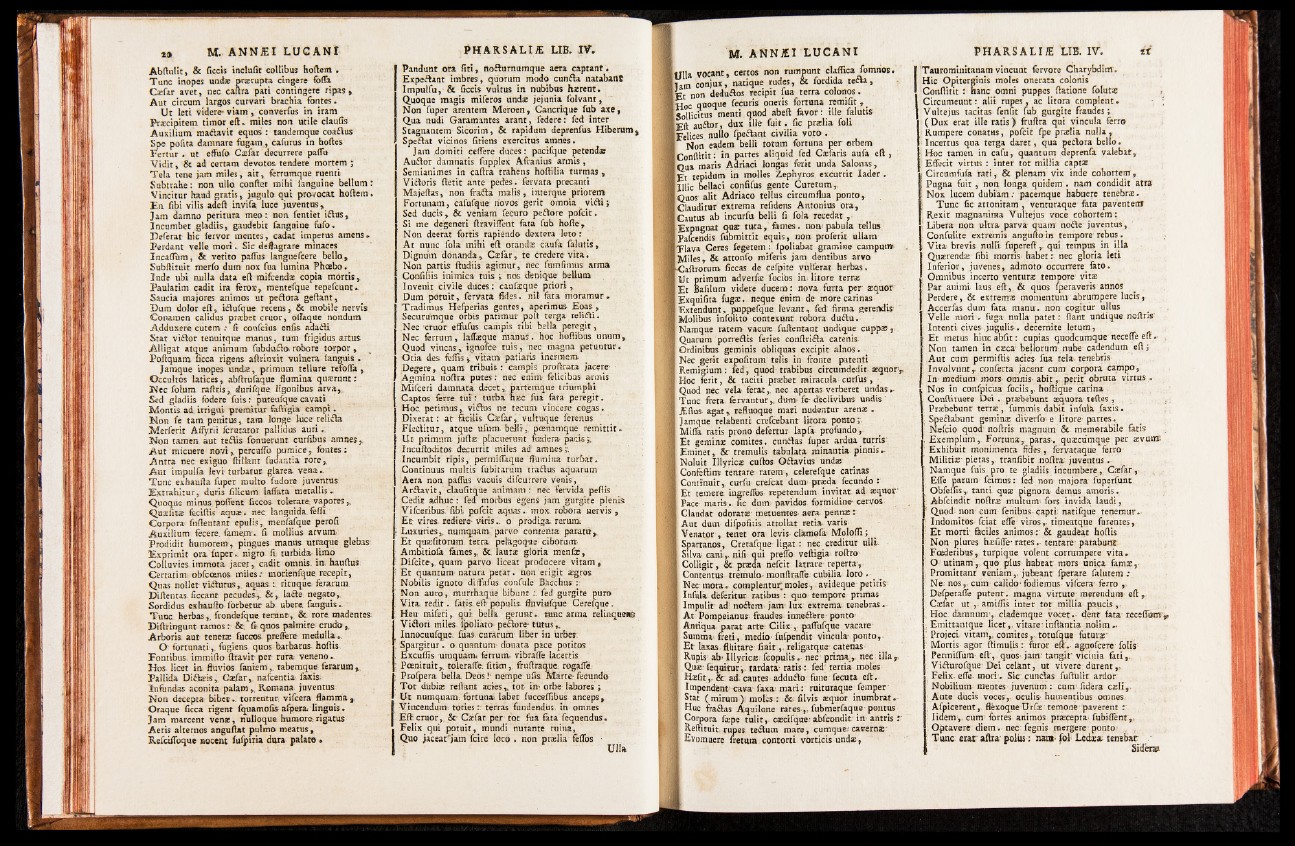 20 M. ANNÆI LUCANI
Abſtulit, & ſiccis incluſit collibus hoſtem.
Tunc inopes undæ prærupta cingere foſſa
Cæſar avet, nec caſtra pati contingere ripas,
Aut circum largos curvari brachia fontes.
Ut leti videre viam, converſus in iram
Præcipitem timor eſt. miles non utile clauſis
Auxilium mactavit equos: tandemque coactus
Spe poſita damnare fugam, caſurus in hoſtes
Fertur. ut effuſo Cæſar decurrere paſſu
Vidit, & ad certam devotos tendere mortem;
Tela tene jam miles, ait, ferrumque ruenti
Subtrahe: non ullo conſtet mihi ſanguine bellum:
Vincitur haud gratis, jugulo qui provocat hoſtem.
En ſibi vilis adeſt inviſa luce juventus,
Jam damno peritura meo: non ſentiet ictus,
Incumbet gladiis, gaudebit ſanguine fuſo.
Deſerat hic fervor mentes, cadat impetus amens.
Perdant velle mori. Sic deflagrare minaces
Incaſſum, & vetito paſſus langueſcere bello,
Subſtituit merſo dum nox ſua lumina Phœbo.
Inde ubi nulla data eſt miſcendæ copia mortis,
Paulatim cadit ira ferox, menteſque tepeſcunt.
Saucia majores animos ut pectora geſtant,
Dum dolor eſt, ictuſque recens, & mobile nervis
Conamen calidus præbet cruor, oſſaque nondum
Adduxere cutem: ſi conſcius enſis adacti
Stat victor tenuitque manus, tum frigidus artus
Alligat atque animum ſubducto robore torpor,
Poſtquam ſicca rigens aſtrinxit vulnera ſanguis.
Jamque inopes undæ, primum tellure refoſſa,
Occultos latices, abſtruſaque flumina quærunt:
Nec ſolum raſtris, duriſque ligonibus arva,
Sed gladiis fodere ſuis: puteuſque cavati
Montis ad irrigui premitur faſtigia campi.
Non ſe tam penitus, tam longe luce relicta
Merſerit Aſſyrii ſcrutator pallidus auri.
Non tamen aut tectis ſonuerunt curſibus amnes,
Aut micuere novi, percuſſo pumice, fontes:
Antra nec exiguo ſtillant ſudantia rore,
Aut impulſa levi turbatur glarea vena.
Tunc exhauſta ſuper multo ſudore juventus
Extrahitur, duris ſilicum laſſata metallis.
Quoque minus poſſent ſiccos tolerare vapores,
Quæſitæ feciſtis aquæ. nec languida feſſi
Corpora ſuſtentant epulis, menſaſque peroſi
Auxilium fecere famem. ſi mollius arvum
Prodidit humorem, pingues manus utraque glebas
Exprimit ora ſuper. nigro ſi turbida limo
Colluvies immota jacet, cadit omnis in hauſtus
Certatim obſcœnos miles: morienſque recepit,
Quas nollet victurus, aquas: rituque ferarum
Diſtentas ſiccant pecudes, &, lacte negato,
Sordidus exhauſto ſorbetur ab ubere ſanguis.
Tunc herbas, frondeſque terunt, & rore madentes
Diſtringunt ramos: & ſi quos palmite crudo,
Arboris aut teneræ ſuccos preſſere medulla.
O fortunati, fugiens quos barbarus hoſtis
Fontibus immiſto ſtravit per rura veneno.
Hos licet in fluvios ſaniem, tabemque ferarum,
Pallida Dictæis, Cæſar, naſcentia ſaxis
Infundas aconita palam, Romana juventus
Non decepta bibet. torrentur viſcera flamma,
Oraque ſicca rigent ſquamoſis aſpera linguis.
Jam marcent venæ, nulloque humore rigatus
Aeris alternos anguſtat pulmo meatus,
Reſciſſoque nocent ſuſpiria dura palato.
PHARSALIÆ LIB. IV.
Pandunt ora ſiti, nocturnumque aera captant.
Expectant imbres, quorum modo cuncta natabant
Impulſu, & ſiccis vultus in nubibus hærent.
Quoque magis miſeros undæ jejunia ſolvant,
Non ſuper arentem Meroen, Cancrique ſub axe,
Qua nudi Garamantes arant, ſedere: ſed inter
Stagnantem Sicorim, & rapidum deprenſus Hiberum,
Spectat vicinos ſitiens exercitus amnes.
Jam domiti ceſſere duces: paciſque petendæ
Auctor damnatis ſupplex Aſranius armis,
Semianimes in caſtra trahens hoſtilia turmas,
Victoris ſtetit ante pedes. ſervata precanti
Majeſtas, non fracta malis, interque priorem
Fortunam, caſuſque novos gerit omnia victi;
Sed ducis, & veniam ſecuro pectore poſcit.
Si me degeneri ſtraviſſent fata ſub hoſte,
Non deerat fortis rapiendo dextera leto:
At nunc ſola mihi eſt orandæ cauſa ſalutis,
Dignum donanda, Cæſar, te credere vita.
Non partis ſtudiis agimur, nec ſumſimus arma
Conſiliis inimica tuis; nos denique bellum
Invenit civile duces: cauſæque priori,
Dum potuit, ſervata fides. nil fata moramur.
Tradimus Heſperias gentes, aperimus Eoas,
Securumque orbis patimur poſt terga relicti.
Nec cruor effuſus campis tibi bella peregit,
Nec ferrum, laſſæque manus. hoc hoſtibus unum,
Quod vincas, ignoſce tuis, nec magna petuntur.
Otia des feſſis, vitam patiaris inermem
Degere, quam tribuis: campis proſtrata jacere
Agmina noſtra putes: nec enim felicibus armis
Miſceri damnata decet, partemque triumphi
Captos ferre tui: turba hæc ſua fata peregit.
Hoc petimus, victus ne tecum vincere cogas.
Dixerat: at facilis Cæſar, vultuque ſerenus
Flectitur, atque uſum belli, pœnamque remittit.
Ut primum juſtæ placuerunt fœdera pacis;
Incuſtoditos decurrit miles ad amnes;
Incumbit ripis, permiſſaque flumina turbat.
Continuus multis ſubitarum tractus aquarum
Aera non paſſus vacuis diſcurrere venis,
Arctavit, clauſitque animam: nec fervida peſtis
Cedit adhuc: ſed morbus egens jam gurgite plenis
Viſceribus ſibi poſcit aquas. mox robora nervis,
Et vires rediere viris. o prodiga rerum
Luxuries, numquam parvo contenta paratu,
Et quæſitorum terra pelagoque ciborum
Ambitioſa fames, & lautæ gloria menſæ,
Diſcite, quam parvo liceat producere vitam,
Et quantum natura petat. non erigit ægros
Nobilis ignoto diffuſus conſule Bacchus:
Non auro, murrhaque bibunt: ſed gurgite puro
Vita redit. ſatis eſt populis fluviuſque Cereſque.
Heu miſeri, qui bella gerunt. tunc arma relinquens
Victori miles ſpoliato pectore tutus,
Innocuuſque ſuas curarum liber in urbes
Spargitur. o quantum donata pace potitos
Excuſſis umquam ferrum vibraſſe lacertis
Pœnituit, toleraſſe ſitim, fruſtraque rogaſſe
Proſpera bella Deos! nempe uſis Marte ſecundo
Tot dubiæ reſtant acies, tot in orbe labores;
Ut nunquam fortuna labet ſucceſſibus anceps,
Vincendum toties: terras fundendus in omnes
Eſt cruor, & Cæſar per tot ſua fata ſequendus.
Felix qui potuit, mundi nutante ruina,
Quo jaceat jam ſcire loco. non prælia feſſos
Ulla
M. ANNÆI LUCANI
Ulla vocant, certos non rumpunt claſſica ſomnos.
Jam conjux, natique rudes, & ſordida tecta,
Et non deductos recipit ſua terra colonos.
Hoc quoque ſecuris oneris fortuna remiſit,
Sollicitus menti quod abeſt favor: ille ſalutis
Eſt auctor, dux ille fuit. ſic prælia ſoli
Felices nullo ſpectant civilia voto.
Non eadem belli totum fortuna per orbem
Conſtitit: in partes aliquid ſed Cæſaris auſa eſt,
Qua maris Adriaci longas ferit unda Salonas,
Et tepidum in molles Zephyros excurrit Iader.
Illic bellaci confiſus gente Curetum,
Quos alit Adriaco tellus circumflua ponto,
Clauditur extrema reſidens Antonius ora,
Cautus ab incurſu belli ſi ſola recedat,
Expugnat quæ tuta, fames. non pabula tellus
Paſcendis ſubmittit equis, non proſerit ullam
Flava Ceres ſegetem: ſpoliabat gramine campum
Miles, & attonſo miſeris jam dentibus arvo
Caſtrorum ſiccas de ceſpite vulſerat herbas.
Ut primum adverſæ ſocios in litore terræ
Et Baſilum videre ducem: nova furta per æquor
Exquiſita fugæ. neque enim de more carinas
Extendunt, puppeſque levant, ſed firma gerendis
Molibus inſolito contexunt robora ductu.
Namque ratem vacuæ ſuſtentant undique cuppæ,
Quarum porrectis ſeries conſtricta catenis
Ordinibus geminis obliquas excipit alnos.
Nec gerit expoſitum telis in fronte patenti
Remigium: ſed, quod trabibus circumdedit æquor,
Hoc ferit, & taciti præbet miracula curſus,
Quod nec vela ferat, nec apertas verberet undas.
Tunc freta ſervantur, dum ſe declivibus undis
Æſtus agat, refluoque mari nudentur arenæ.
Jamque relabenti creſcebant litora ponto;
Miſſa ratis prono defertur lapſa profundo,
Et geminæ comites. cunctas ſuper ardua turris
Eminet, & tremulis tabulata minantia pinnis.
Noluit Illyricæ cuſtos Octavius undæ
Confeſtim tentare ratem, celereſque carinas
Continuit, curſu creſcat dum præda ſecundo:
Et temere ingreſſos repetendum invitat ad æquor
Pace maris. ſic dum pavidos formidine cervos
Claudat odoratæ metuentes aera pennæ:
Aut dum diſpoſitis attollat retia varis
Venator, tenet ora levis clamoſa Moloſſi;
Spartanos, Cretaſque ligat: nec creditur ulli
Silva cani, niſi qui preſſo veſtigia roſtro
Colligit, & præda neſcit latrare reperta,
Contentus tremulo monſtraſſe cubilia loro.
Nec mora. complentur moles, avideque petitis
Inſula deſeritur ratibus: quo tempore primas
Impulit ad noctem jam lux extrema tenebras.
At Pompeianus fraudes innectere ponto
Antiqua parat arte Cilix, paſſuſque vacare
Summa freti, medio ſuſpendit vincula ponto,
Et laxas fluitare ſinit, religatque catenas
Rupis ab Illyricæ ſcopulis. nec prima, nec illa,
Quæ ſequitur, tardata ratis: ſed tertia moles
Hæſit, & ad cautes adducto fune ſecuta eſt.
Impendent cava ſaxa mari: ruituraque ſemper
Stat (mirum) moles: & ſilvis æquor inumbrat.
Huc fractas Aquilone rates, ſubmerſaque pontus
Corpora ſæpe tulit, cæciſque abſcondit in antris:
Reſtituit rupes tectum mare, cumque cavernæ
Evomuere fretum contorti vorticis undæ,
PHARSALIÆ LIB. IV. 21
Taurominitanam vincunt fervore Charybdim.
Hic Opiterginis moles onerata colonis
Conſtitit: hanc omni puppes ſtatione ſolutæ
Circumeunt: alii rupes, ac litora complent.
Vultejus tacitas ſenſit ſub gurgite fraudes;
(Dux erat ille ratis) fruſtra qui vincula ferro
Rumpere conatus, poſcit ſpe prælia nulla,
Incertus qua terga daret, qua pectora bello.
Hoc tamen in caſu, quantum deprenſa valebat,
Effecit virtus: inter tot millia captæ
Circumfuſa rati, & plenam vix inde cohortem,
Pugna fuit, non longa quidem. nam condidit atra
Nox lucem dubiam: pacemque habuere tenebræ.
Tunc ſic attonitam, venturaque fata paventem
Rexit magnanima Vultejus voce cohortem:
Libera non ultra parva quam nocte juventus,
Conſulite extremis anguſto in tempore rebus.
Vita brevis nulli ſupereſt, qui tempus in illa
Quærendæ ſibi mortis habet: nec gloria leti
Inferior, juvenes, admoto occurrere fato.
Omnibus incerto venturæ tempore vitæ
Par animi laus eſt, & quos ſperaveris annos
Perdere, & extremæ momentum abrumpere lucis,
Accerſas dum fata manu. non cogitur ullus
Velle mori. fuga nulla patet: ſtant undique noſtris
Intenti cives jugulis. decernite letum,
Et metus hinc abſit: cupias quodcumque neceſſe eſt.
Non tamen in cæca bellorum nube cadendum eſt;
Aut cum permiſtis acies ſua tela tenebris
Involvunt, conferta jacent cum corpora campo,
In medium mors omnis abit, perit obruta virtus.
Nos in conſpicua ſociis, hoſtique carina
Conſtituere Dei. præbebunt æquora teſtes,
Præbebunt terræ, ſummis dabit inſula ſaxis.
Spectabunt geminæ diverſo e litore partes.
Neſcio quod noſtris magnum & memorabile fatis
Exemplum, Fortuna, paras. quæcumque per ævum
Exhibuit monimenta fides, ſervataque ferro
Militiæ pietas, tranſibit noſtra juventus.
Namque ſuis pro te gladiis incumbere, Cæſar,
Eſſe parum ſcimus: ſed non majora ſuperſunt
Obſeſſis, tanti quæ pignora demus amoris.
Abſcindit noſtræ multum fors invida laudi,
Quod non cum ſenibus capti natiſque tenemur.
Indomitos ſciat eſſe viros, timeatque furentes,
Et morti faciles animos: & gaudeat hoſtis
Non plures hæſiſſe rates. tentare parabunt
Fœderibus, turpique volent corrumpere vita.
O utinam, quo plus habeat mors unica famæ,
Promittant veniam, jubeant ſperare ſalutem:
Ne nos, cum calido fodiemus viſcera ferro,
Deſperaſſe putent. magna virtute merendum eſt,
Cæſar ut, amiſſis inter tot millia paucis,
Hoc damnum, clademque vocet. dent fata receſſum,
Emittantque licet, vitare inſtantia nolim.
Projeci vitam, comites, totuſque futuræ
Mortis agor ſtimulis: furor eſt. agnoſcere ſolis
Permiſſum eſt, quos jam tangit vicinia fati,
Victuroſque Dei celant, ut vivere durent,
Felix eſſe mori. Sic cunctas ſuſtulit ardor
Nobilium mentes juvenum: cum ſidera cæli,
Ante ducis voces, oculis humentibus omnes
Aſpicerent, flexoque Urſæ temone paverent:
Iidem, cum fortes animos præcepta ſubiſſent,
Optavere diem. nec ſegnis mergere ponto
Tunc erat aſtra polus: nam ſol Ledæa tenebat
Sidera